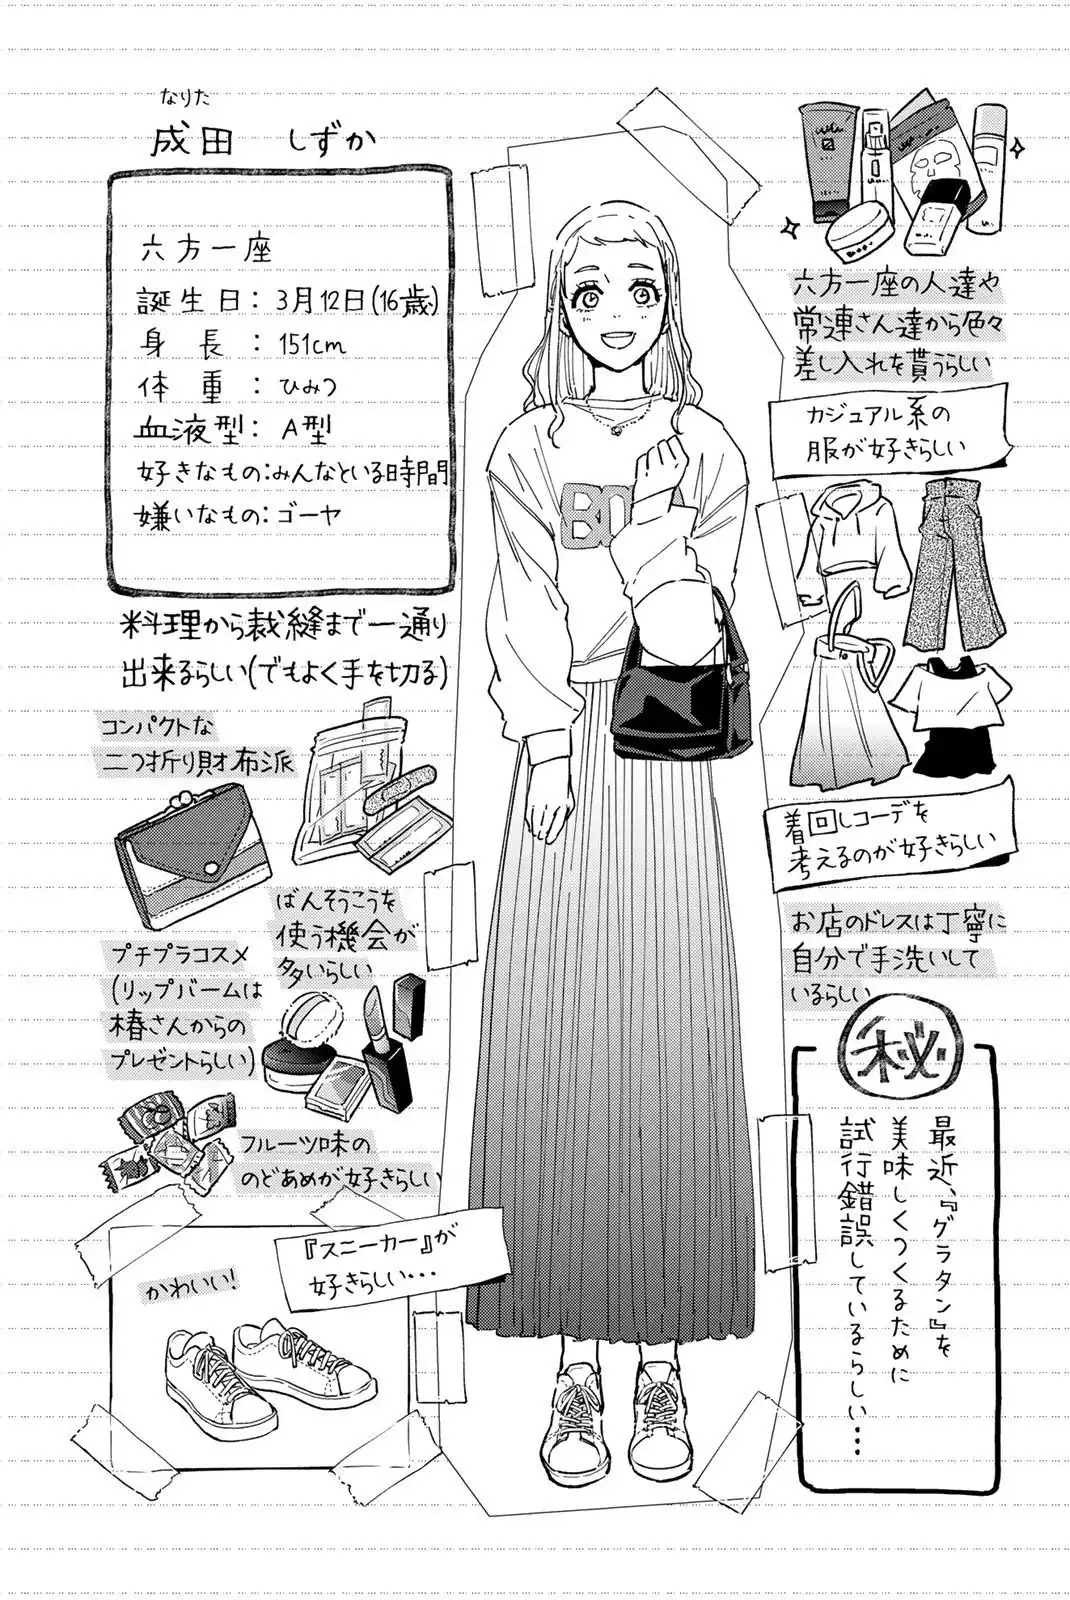 なりた
成田 しずか
六方一座
誕生日：3月12日(16歳)
身長：151cm
体重：ひみつ
血液型：A型
好きなもの：みんなといる時間
嫌いなもの：ゴーヤ
料理から裁縫まで一通り
出来るらしい(でもよく手を切る)
コンパクトな
二つ折り財布派
ばんそうこうを
使う機会が
多いらしい
プチプラコスメ
(リップバームは
椿さんからの
プレゼントらしい)
フルーツ味の
のどあめが好きらしい
『スニーカー』が
好きらしい・・・
かわいい!
六方一座の人達や
常連さん達から色々
差し入れを貰うらしい
カジュアル系の
服が好きらしい
着回しコーデを
考えるのが好きらしい
お店のドレスは丁寧に
自分で手洗いして
いるらしい
秘
最近、『グラタン』を
美味しくつくるために
試行錯誤しているらしい・・・